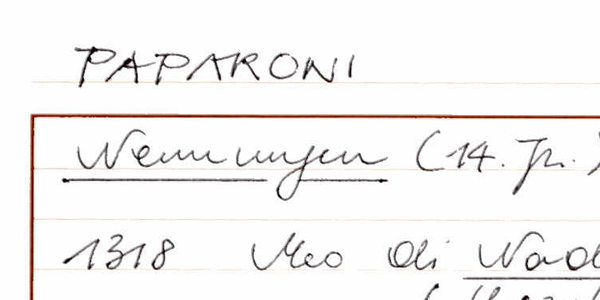 PAPARONI
Nennungen (14. Jh.)
1318 Meo di